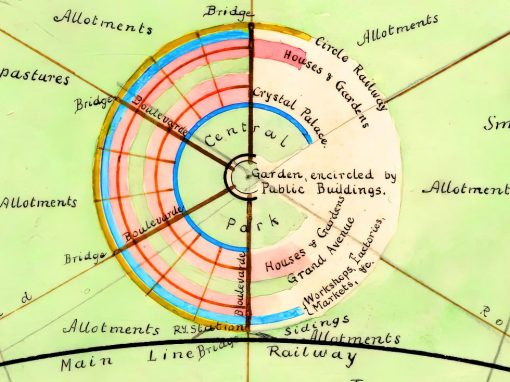 Bridge
Allotments
Allotments
Circle Railway
Houses & Gardens
pastures
Bridge
Boulevarde
Crystal Palace
Central
Sm
Garden, encircled by
Public Buildings.
Allotments
Allotment
Boulevarde
Park
Houses & Gardens
Grand Avenue
Workshops, Factories,
Markets, &c.
Bridge
Boulevarde
d
R o
Allotments
Ry. Station
Sidings
Allotments
Main Line
Bridge
Railway